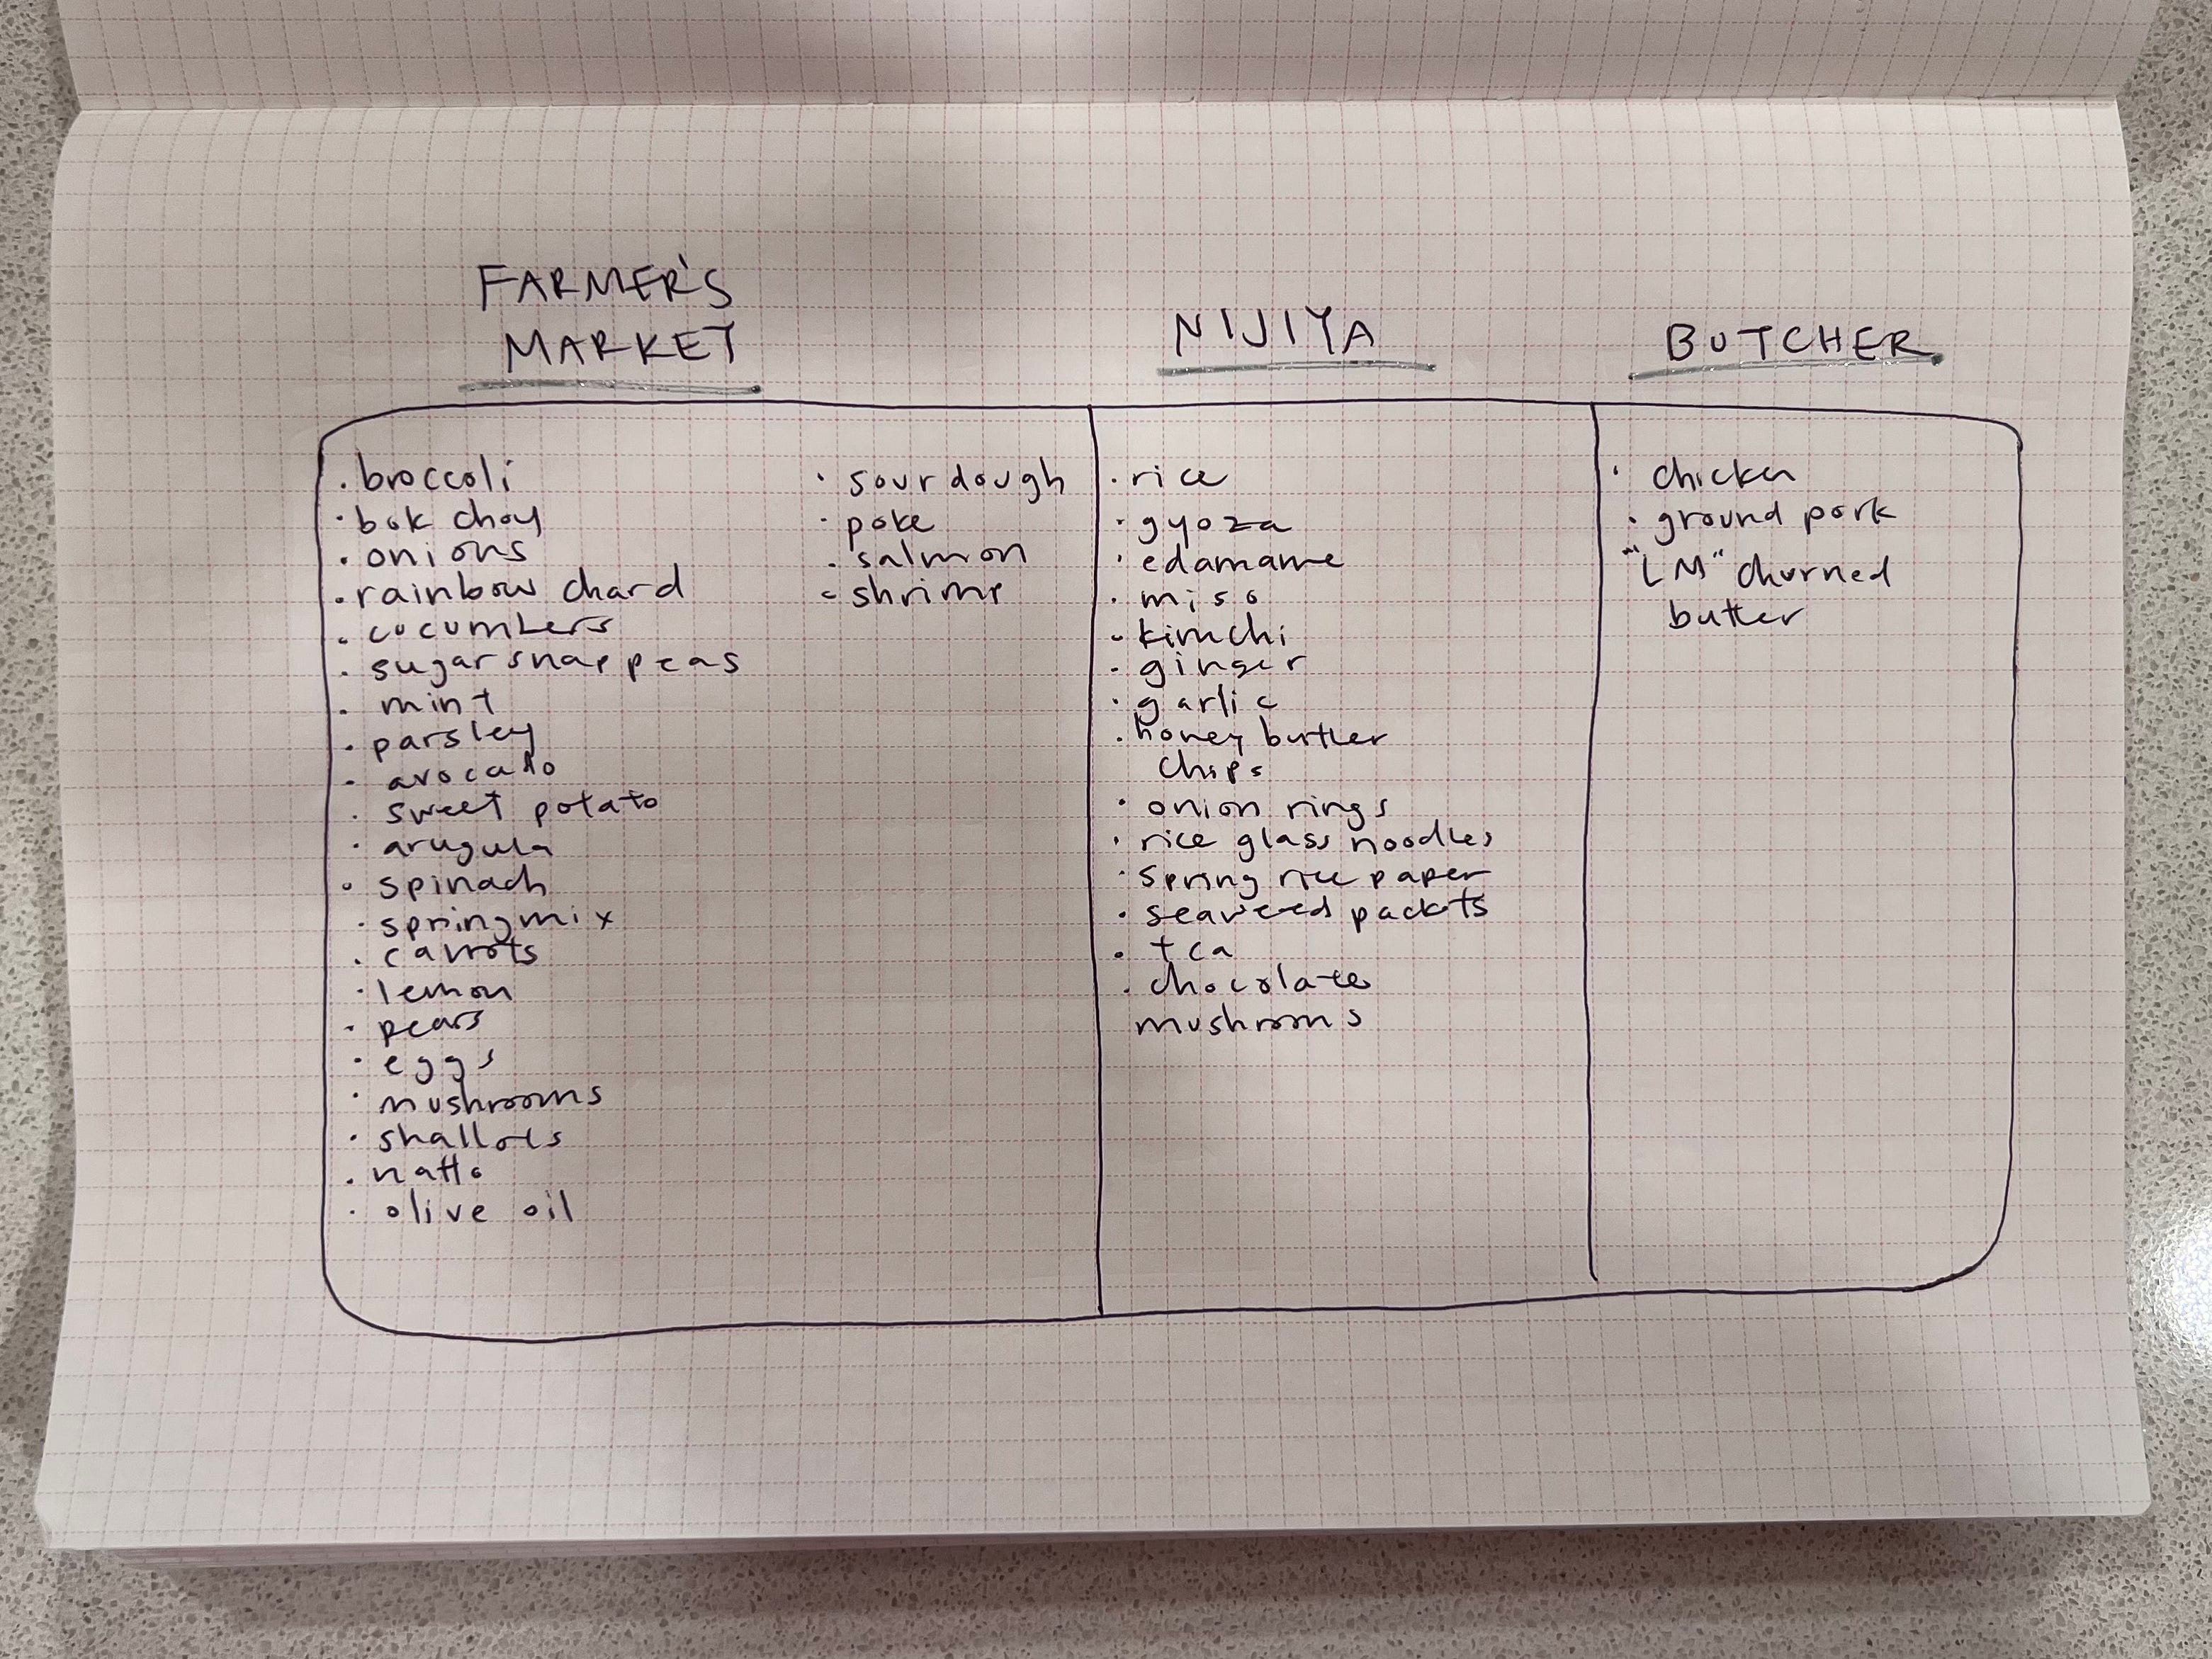 FARMER'S
MARKET
· broccoli
· bok choy
· onions
· rainbow chard
· cucumbers
· sugar snap peas
· mint
· parsley
· avocado
· sweet potato
· arugula
· spinach
· spring mix
· carrots
· lemon
· pears
· eggs
· mushrooms
· shallots
· natto
· olive oil
· sourdough
· poke
· salmon
· shrimp
NIJIYA
· rice
· gyoza
· edamame
· miso
· kimchi
· ginger
· garlic
· honey butter
chips
· onion rings
· rice glass noodles
· spring rice paper
· seaweed packets
· tea
· chocolate
mushrooms
BUTCHER
· chicken
· ground pork
· "LM" churned
butter